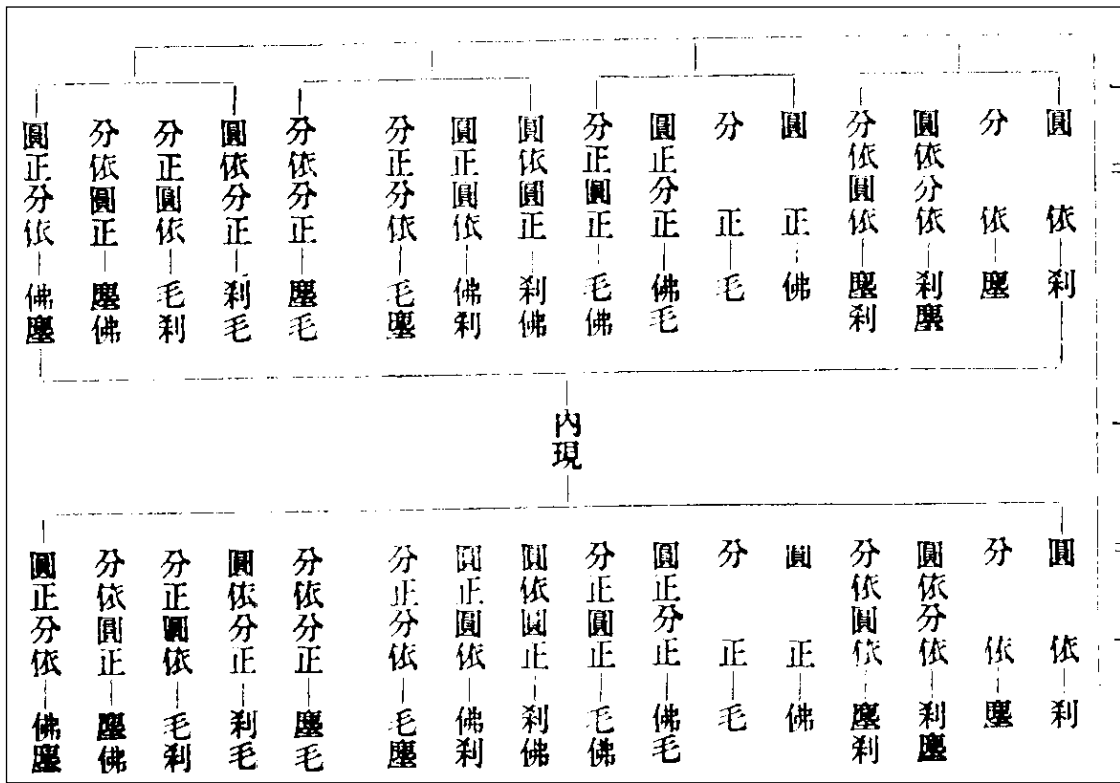 圓依—刹
分依—塵
圓依分依—刹塵
分依圓依—塵刹
圓正—佛
分正—毛
圓正分正—佛毛
分正圓正—毛佛
圓依圓正—刹佛
圓正圓依—佛刹
分正分依—毛塵
分依分正—塵毛
圓依分正—刹毛
分正圓依—毛刹
分依圓正—塵佛
圓正分依—佛塵
內現
圓依—刹
分依—塵
圓依分依—刹塵
分依圓依—塵刹
圓正—佛
分正—毛
圓正分正—佛毛
分正圓正—毛佛
圓依圓正—刹佛
圓正圓依—佛刹
分正分依—毛塵
分依分正—塵毛
圓依分正—刹毛
分正圓依—毛刹
分依圓正—塵佛
圓正分依—佛塵